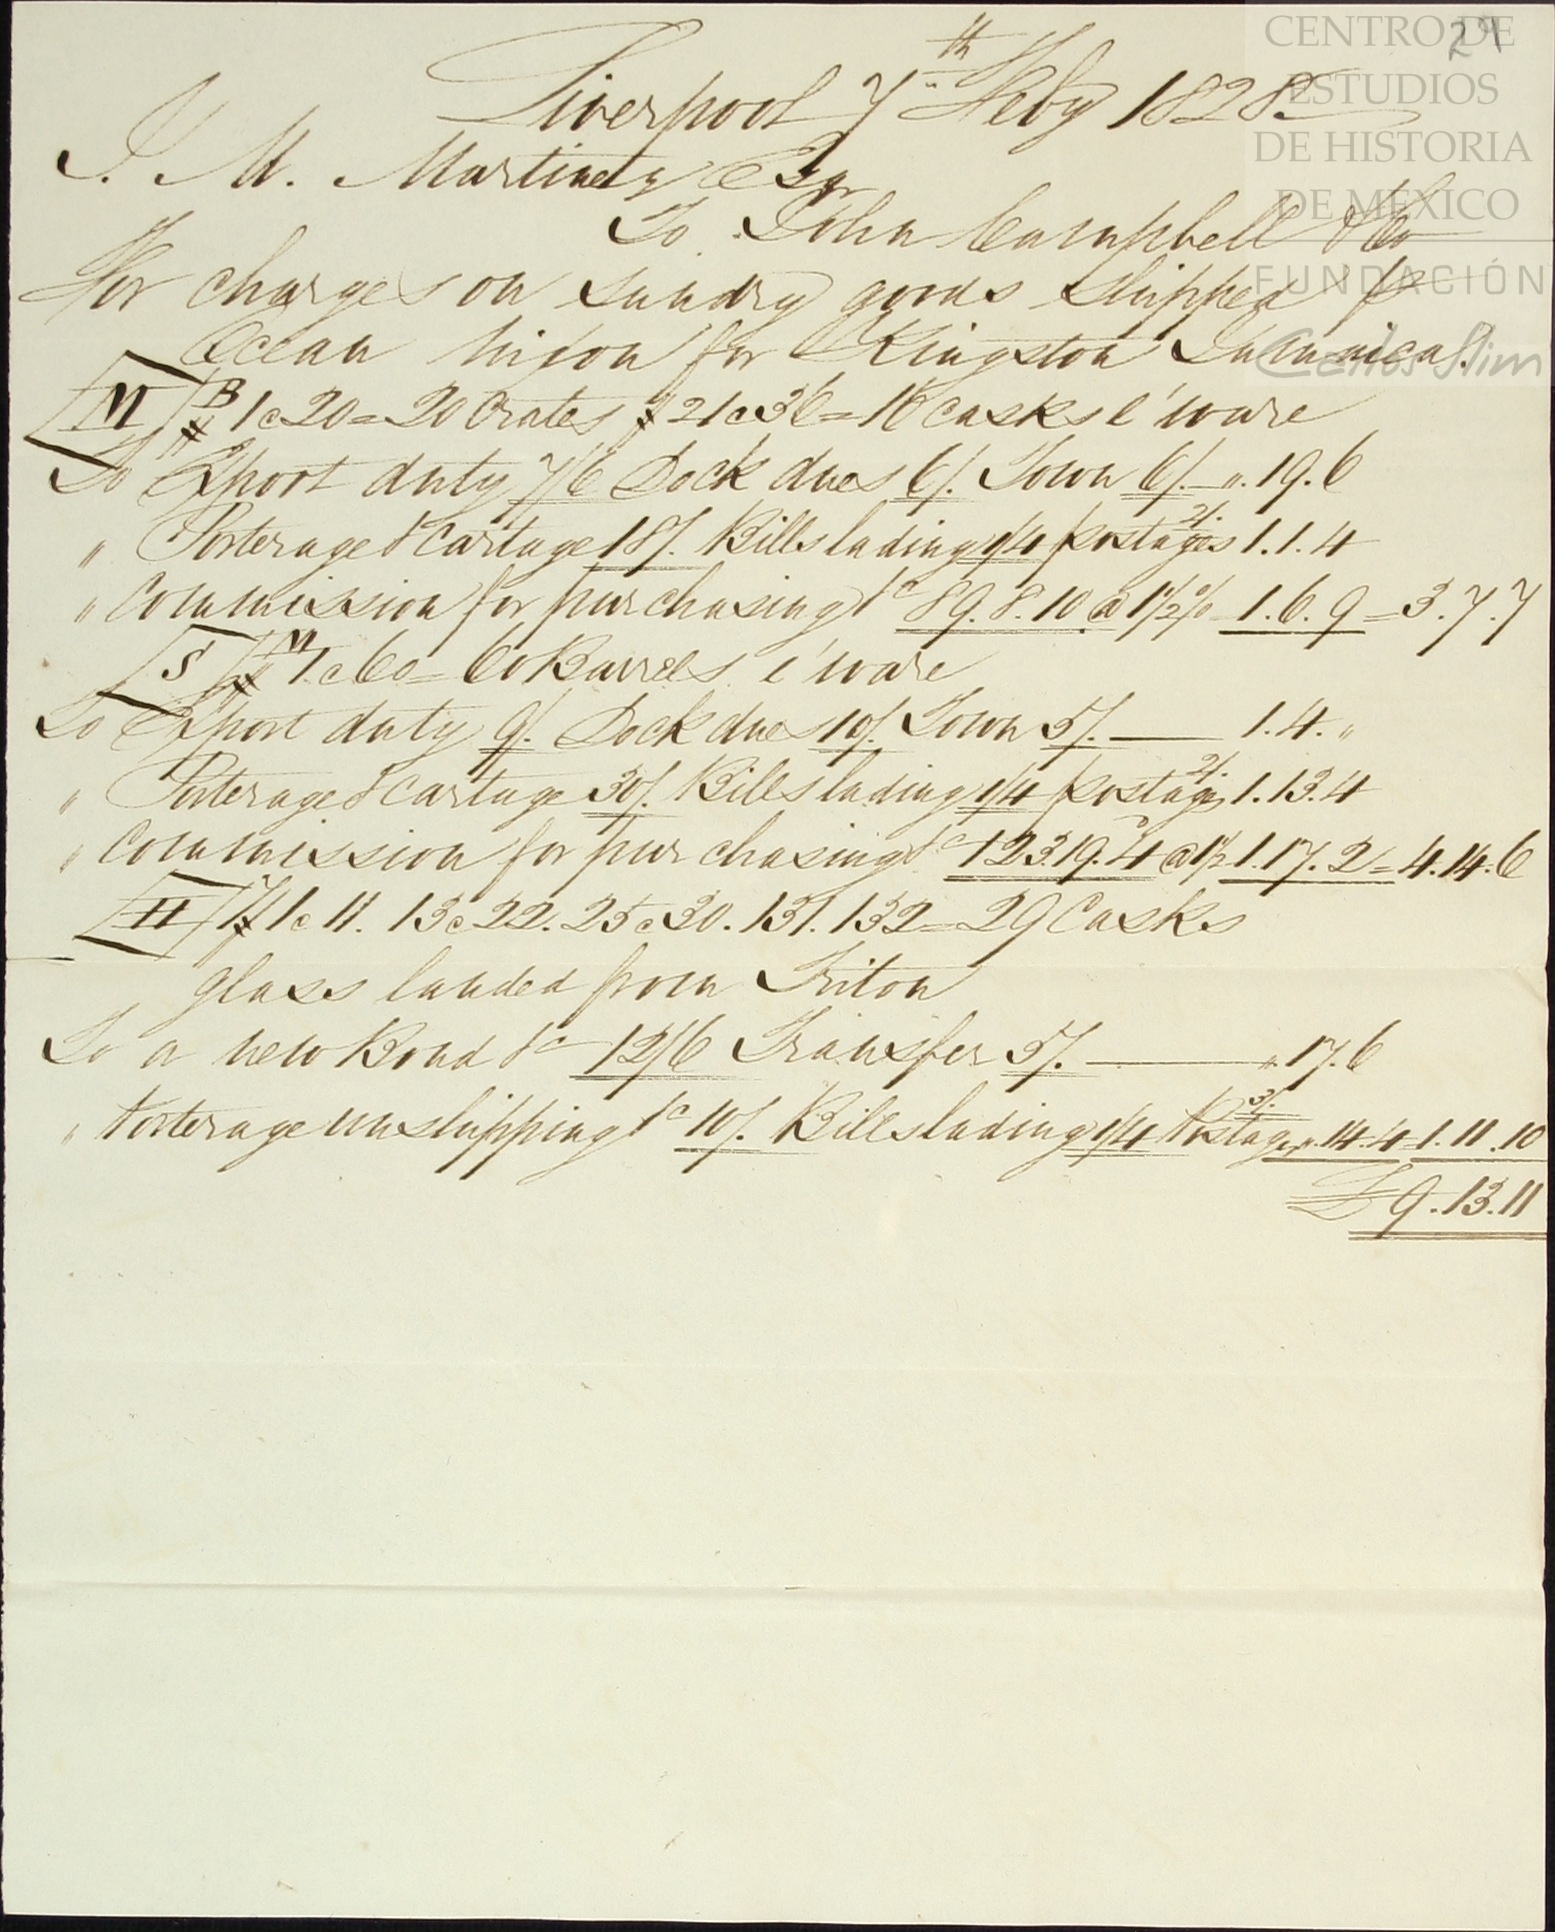 CENTRO DE
ESTUDIOS
DE HISTORIA
DE MÉXICO
FUNDACIÓN
Carlos Slim
29
Liverpool 7th Feby 1828
J. M. Martinez Esqr
To John Campbell & Co
For charges on sundry goods shipped p
Ocean Nixon for Kingston Jamaica.
M B # 1 a 20 = 20 Crates # 21 a 36 = 16 casks e'ware
To Export duty 7/6 Dock dues 6/. Town 6/. — ". 19. 6
" Porterage & Cartage 18/. Bills lading 1/4 postages 2/. 1. 1. 4
" Commission for purchasing &c 89. 8. 10 @ 1½% 1. 6. 9 = 3. 7. 7
S M # 1 a 60 = 60 Barrels e'ware
To Export duty 9/. Dock dues 10/. Town 5/. — 1. 4. "
" Porterage & Cartage 30/. Bills lading 1/4 postages 2/. 1. 13. 4
" Commission for purchasing &c 123. 19. 4 @ 1½ 1. 17. 2 = 4. 14. 6
H # 1 a 11. 13 a 22. 25 a 30. 131. 132 = 29 Casks
glass landed from Triton
To a new Bond &c 12/6 Transfer 5/. — ". 17. 6
" Porterage unshipping &c 10/. Bills lading 1/4 Postages 3/. ". 14. 4 = 1. 11. 10
£ 9. 13. 11